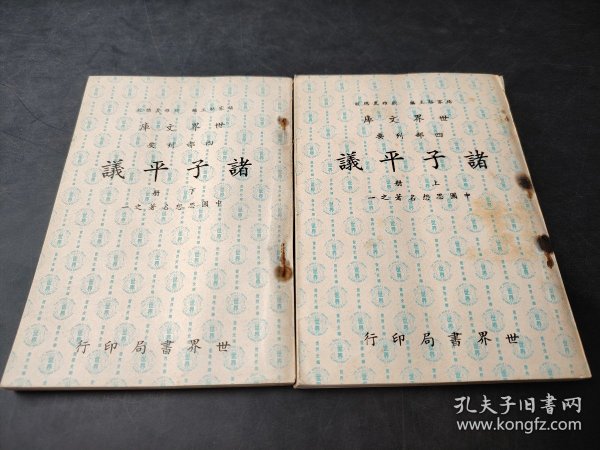 楊家駱主編 劉雅農總校
世界文庫
四部刊要
諸子平議
上冊
中國思想名著之一
世界書局印行
楊家駱主編 劉雅農總校
世界文庫
四部刊要
諸子平議
下冊
中國思想名著之一
世界書局印行
孔夫子旧书网
www.kongfz.com